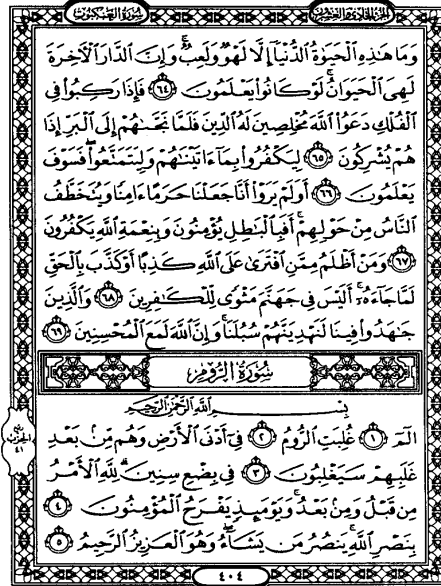 الجزء الحادي والعشرون
سورة العنكبوت
وَمَا هَٰذِهِ الْحَيَوٰةُ الدُّنْيَآ إِلَّا لَهْوٌ وَلَعِبٌ ۚ وَإِنَّ الدَّارَ الْأَخِرَةَ
لَهِىَ الْحَيَوَانُ ۚ لَوْ كَانُوا۟ يَعْلَمُونَ ٦٤ فَإِذَا رَكِبُوا۟ فِى
الْفُلْكِ دَعَوُا۟ اللَّهَ مُخْلِصِينَ لَهُ الدِّينَ فَلَمَّا نَجَّىٰهُمْ إِلَى الْبَرِّ إِذَا
هُمْ يُشْرِكُونَ ٦٥ لِيَكْفُرُوا۟ بِمَآ ءَاتَيْنَٰهُمْ وَلِيَتَمَتَّعُوا۟ ۖ فَسَوْفَ
يَعْلَمُونَ ٦٦ أَوَلَمْ يَرَوْا۟ أَنَّا جَعَلْنَا حَرَمًا ءَامِنًا وَيُتَخَطَّفُ
النَّاسُ مِنْ حَوْلِهِمْ ۚ أَفَبِالْبَٰطِلِ يُؤْمِنُونَ وَبِنِعْمَةِ اللَّهِ يَكْفُرُونَ
٦٧ وَمَنْ أَظْلَمُ مِمَّنِ افْتَرَىٰ عَلَى اللَّهِ كَذِبًا أَوْ كَذَّبَ بِالْحَقِّ
لَمَّا جَآءَهُۥٓ ۚ أَلَيْسَ فِى جَهَنَّمَ مَثْوًى لِّلْكَٰفِرِينَ ٦٨ وَالَّذِينَ
جَٰهَدُوا۟ فِينَا لَنَهْدِيَنَّهُمْ سُبُلَنَا ۚ وَإِنَّ اللَّهَ لَمَعَ الْمُحْسِنِينَ ٦٩
سُورَةُ الرُّومِ
بِسْمِ اللَّهِ الرَّحْمَٰنِ الرَّحِيمِ
الٓمٓ ١ غُلِبَتِ الرُّومُ ٢ فِىٓ أَدْنَى الْأَرْضِ وَهُم مِّنۢ بَعْدِ
غَلَبِهِمْ سَيَغْلِبُونَ ٣ فِى بِضْعِ سِنِينَ ۗ لِلَّهِ الْأَمْرُ
مِن قَبْلُ وَمِنۢ بَعْدُ ۚ وَيَوْمَئِذٍ يَفْرَحُ الْمُؤْمِنُونَ ٤
بِنَصْرِ اللَّهِ ۚ يَنصُرُ مَن يَشَآءُ ۖ وَهُوَ الْعَزِيزُ الرَّحِيمُ ٥
الحزب
٤١
٤٠٤